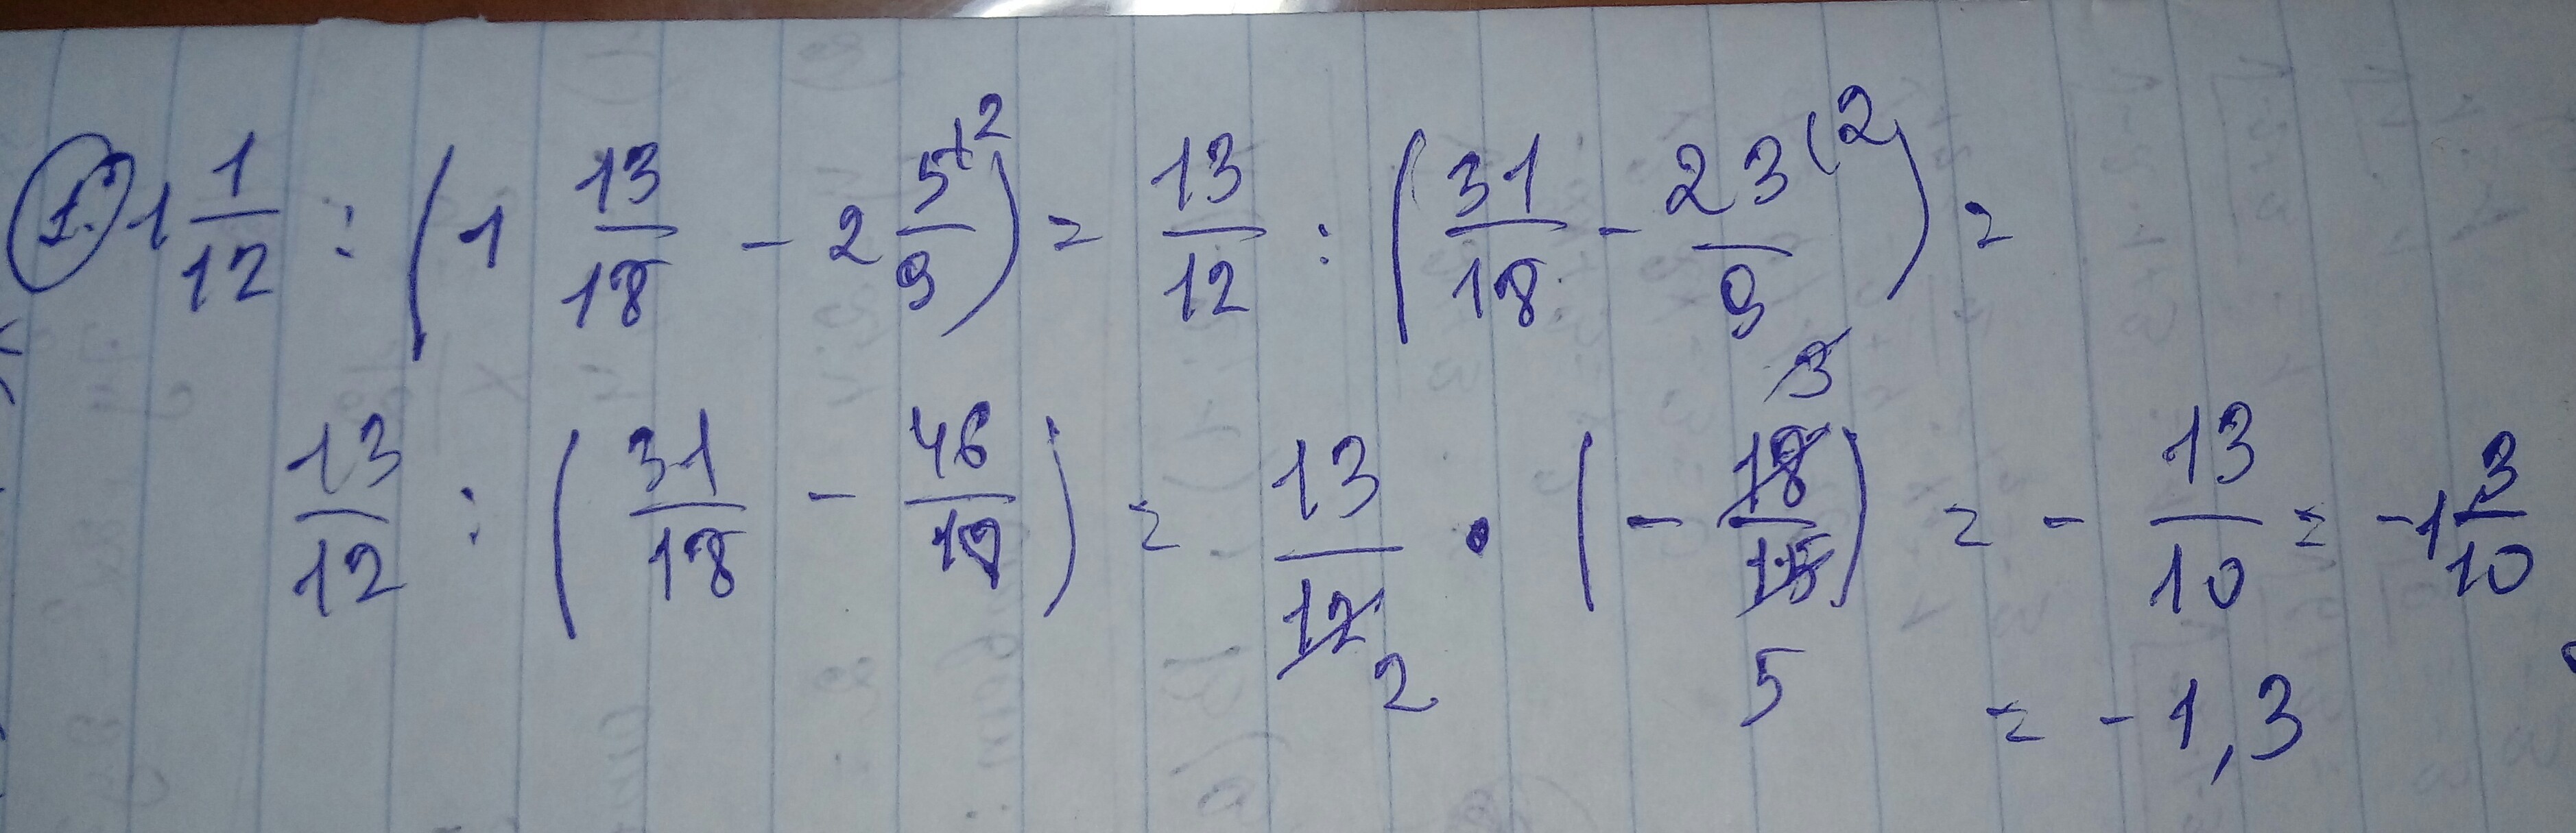 1. 1 1/12 : (1 13/18 - 2 5/9 (2) = 13/12 : (31/18 - 23/9 (2) =
13/12 : (31/18 - 46/18) = 13/12 2 · (- 18/15 3 5) = - 13/10 = -1 3/10
= -1,3